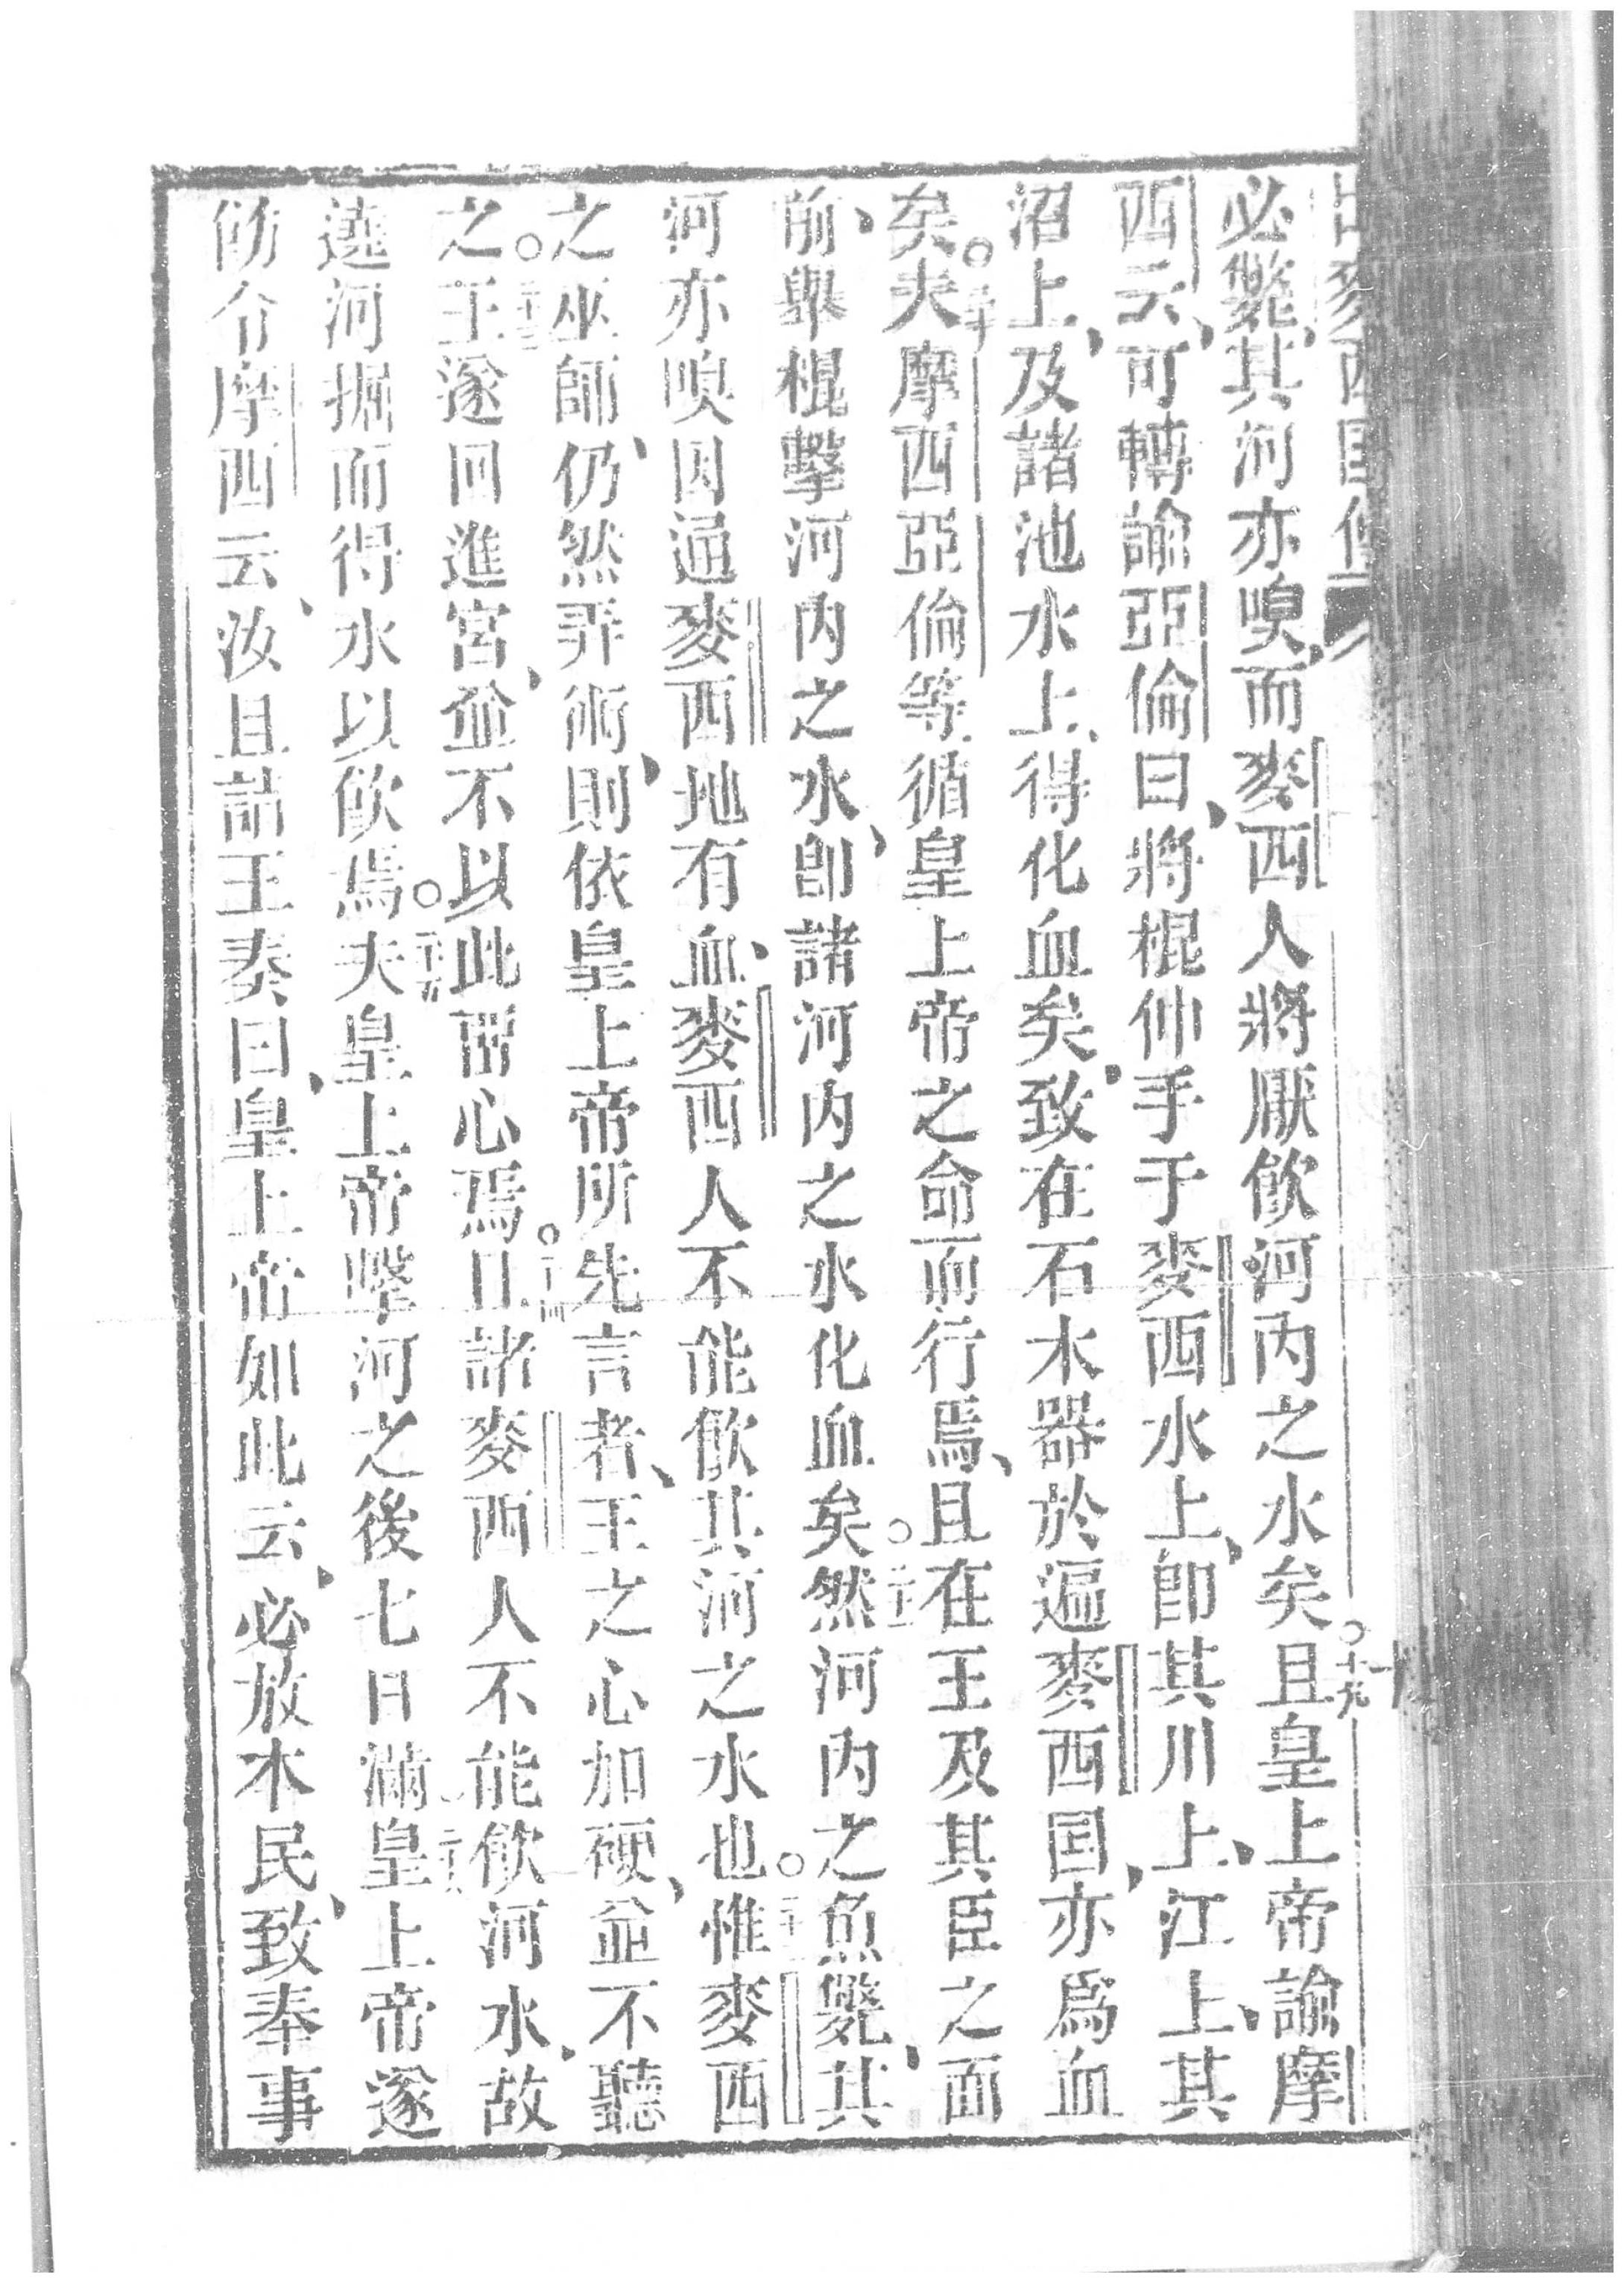 出麥西国傳
必斃、其河亦嗅、而麥西人將厭飲河內之水矣。十九且皇上帝諭摩
西云、可轉諭亞倫曰、將棍伸手于麥西水上、卽其川上、江上、其
沼上、及諸池水上、得化血矣、致在石木器於遍麥西国、亦爲血
矣。二十夫摩西亞倫等循皇上帝之命而行焉、且在王及其臣之面
前、舉棍擊河內之水、卽諸河內之水化血矣。二十一然河內之魚斃、其
河亦嗅因通麥西地有血、麥西人不能飲其河之水也。二十二惟麥西
之巫師、仍然弄術、則依皇上帝所先言者、王之心加硬、並不聽
之。二十三王遂回進宮、並不以此留心焉。二十四且諸麥西人不能飲河水、故
遶河掘而得水以飲焉。二十五夫皇上帝擊河之後七日滿皇上帝遂
飭令摩西云、汝且詣王奏曰、皇上帝如此云、必放本民、致奉事